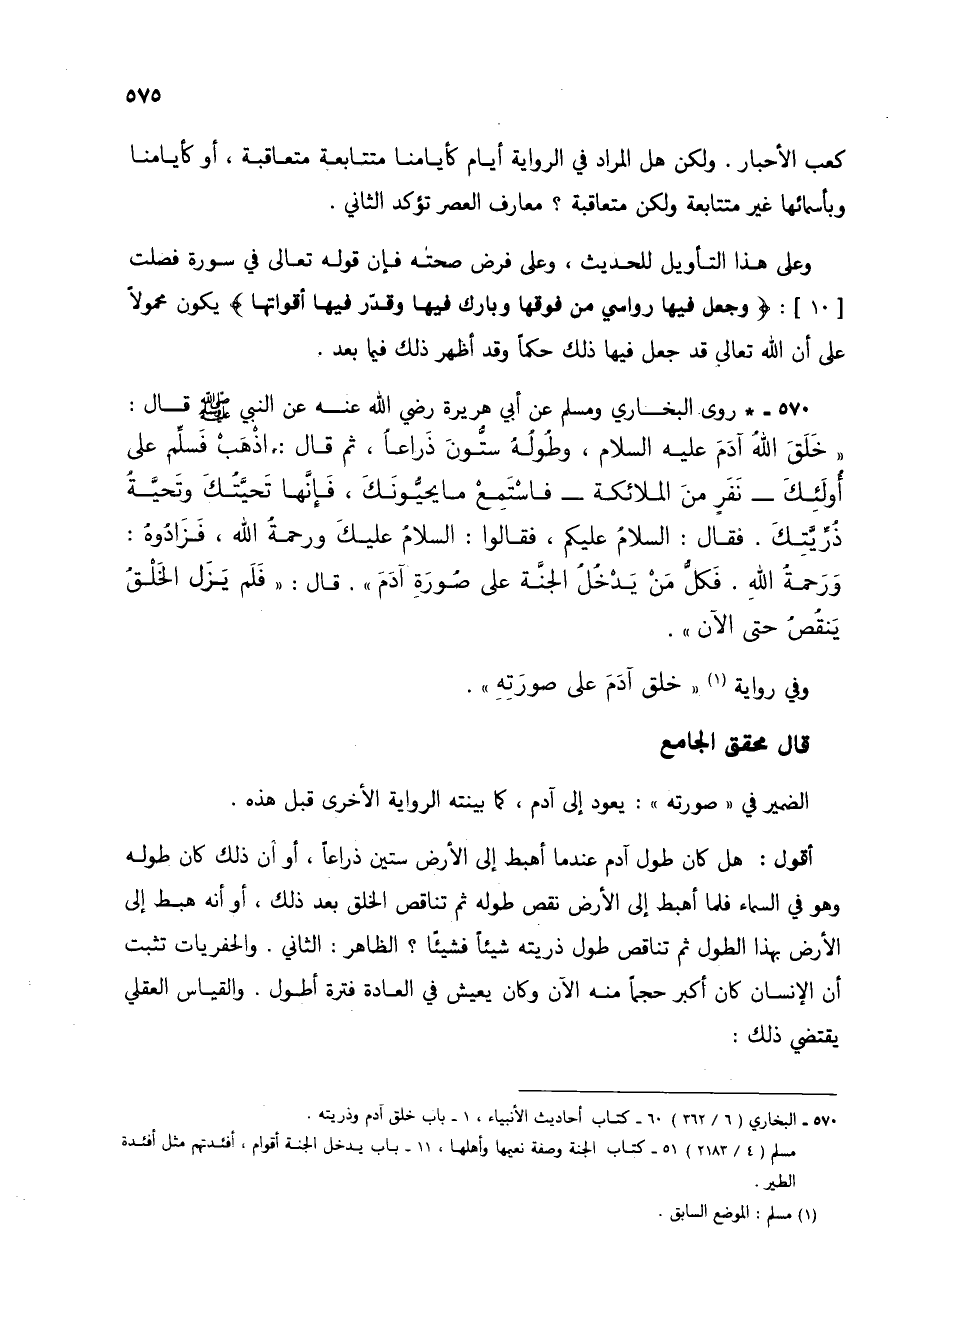 ٥٧٥
كعب الأحبار . ولكن هل المراد في الرواية أيـام كأيـامنـا متتـابعـة متعـاقبـة ، أو كأيـامنـا
وبأسمائها غير متتابعة ولكن متعاقبة ؟ معارف العصر تؤكد الثاني .
وعلى هـذا التـأويل للحـديث ، وعلى فرض صحتـه فـإن قولـه تعـالى في سـورة فصلت
[ ١٠ ] : ﴿ وجعل فيهـا رواسي من فوقهـا وبارك فيهـا وقـدّر فيهـا أقواتهـا ﴾ يكون محمولاً
على أن الله تعالى قد جعل فيها ذلك حكماً وقد أظهر ذلك فيما بعد .
٥٧٠ ـ * روى البخـاري ومسلم عن أبي هريرة رضي الله عنـه عن النبي ﷺ قـال :
« خَلَقَ اللهُ آدَمَ عليـه السلام ، وطُولُـهُ ستُّـونَ ذِراعـاً ، ثم قـال : اذْهَبْ فَسلِّم على
أُولَئِـكَ ـ نَفَرٍ مِنَ المـلائكـة ـ فـاسْتَمِـعْ مـايحيُّـونَـكَ ، فَـإنَّهـا تَحيَّتُـكَ وتَحيَّـةُ
ذُرِّيَّتـكَ . فقـال : السلامُ عليكم ، فقـالوا : السلامُ عليـكَ ورحمـةُ الله ، فَـزَادُوهُ :
وَرَحمـةُ الله . فَكلُّ مَنْ يَـدْخُلُ الجنَّـة على صُورَةِ آدَمَ » . قـال : « فَلَم يَـزَلِ الخَلْـقُ
يَنقُصُ حتى الآن » .
وفي رواية (١) « خلق آدَمَ على صورَتِهِ » .
قال محقق الجامع
الضمير في « صورته » : يعود إلى آدم ، كما بينته الرواية الأخرى قبل هذه .
أقول : هل كان طول آدم عندما أهبط إلى الأرض ستين ذراعاً ، أو أن ذلك كان طولـه
وهو في السماء فلما أهبط إلى الأرض نقص طوله ثم تناقص الخلق بعد ذلك ، أو أنه هبـط إلى
الأرض بهذا الطول ثم تناقص طول ذريته شيئاً فشيئًا ؟ الظاهر : الثاني . والحفريات تثبت
أن الإنسـان كان أكبر حجماً منـه الآن وكان يعيش في العـادة فترة أطول . والقيـاس العقلي
يقتضي ذلك :
٥٧٠ ـ البخاري ( ٦ / ٣٦٢ ) ٦٠ ـ كتـاب أحاديث الأنبياء ، ١ ـ باب خلق آدم وذريته .
مسلم ( ٤ / ٢١٨٣ ) ٥١ ـ كتـاب الجنة وصفة نعيها وأهلهـا ، ١١ ـ بـاب يـدخل الجنـة أقوام ، أفئـدتهم مثل أفئـدة
الطير .
(١) مسلم : الموضع السابق .